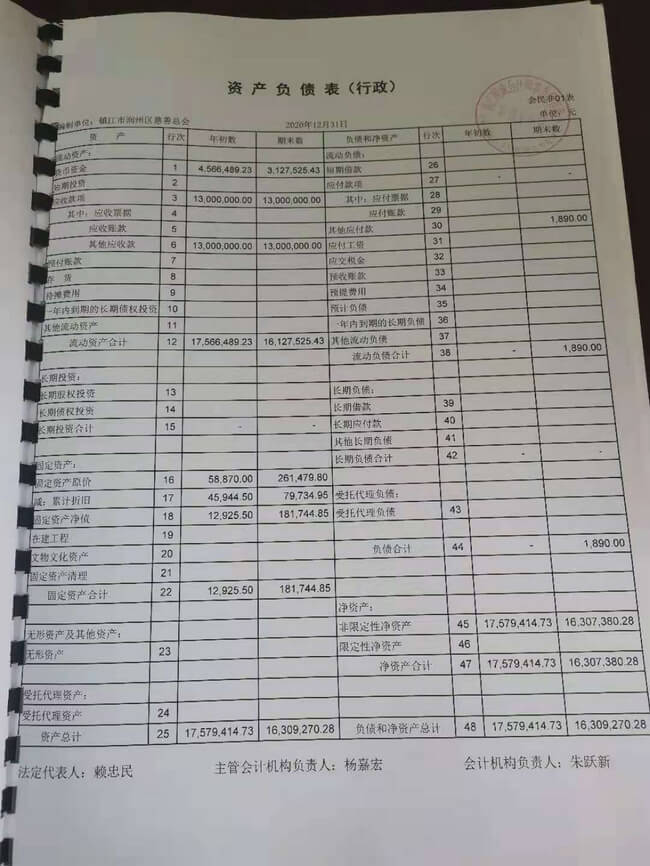 资产负债表（行政）
会民非01表
编制单位：镇江市润州区慈善总会 2020年12月31日 单位：元
资 产 行次 年初数 期末数 负债和净资产 行次 年初数 期末数
流动资产： 流动负债：
货币资金 1 4,566,489.23 3,127,525.43 短期借款 26 - -
短期投资 2 应付款项 27
应收款项 3 13,000,000.00 13,000,000.00 其中：应付票据 28
其中：应收票据 4 应付账款 29
应收账款 5 其他应付款 30 1,890.00
其他应收款 6 13,000,000.00 13,000,000.00 应付工资 31
预付账款 7 应交税金 32
存 货 8 预收账款 33
待摊费用 9 预提费用 34
一年内到期的长期债权投资 10 预计负债 35
其他流动资产 11 一年内到期的长期负债 36
流动资产合计 12 17,566,489.23 16,127,525.43 其他流动负债 37
流动负债合计 38 - 1,890.00
长期投资：
长期股权投资 13 长期负债：
长期债权投资 14 长期借款 39
长期投资合计 15 - - 长期应付款 40
其他长期负债 41
固定资产： 长期负债合计 42 - -
固定资产原价 16 58,870.00 261,479.80
减：累计折旧 17 45,944.50 79,734.95 受托代理负债：
固定资产净值 18 12,925.50 181,744.85 受托代理负债 43
在建工程 19
文物文化资产 20 负债合计 44 - 1,890.00
固定资产清理 21
固定资产合计 22 12,925.50 181,744.85
净资产：
无形资产及其他资产： 非限定性净资产 45 17,579,414.73 16,307,380.28
无形资产 23 限定性净资产 46
净资产合计 47 17,579,414.73 16,307,380.28
受托代理资产：
受托代理资产 24
资产总计 25 17,579,414.73 16,309,270.28 负债和净资产总计 48 17,579,414.73 16,309,270.28
法定代表人：赖忠民 主管会计机构负责人：杨嘉宏 会计机构负责人：朱跃新